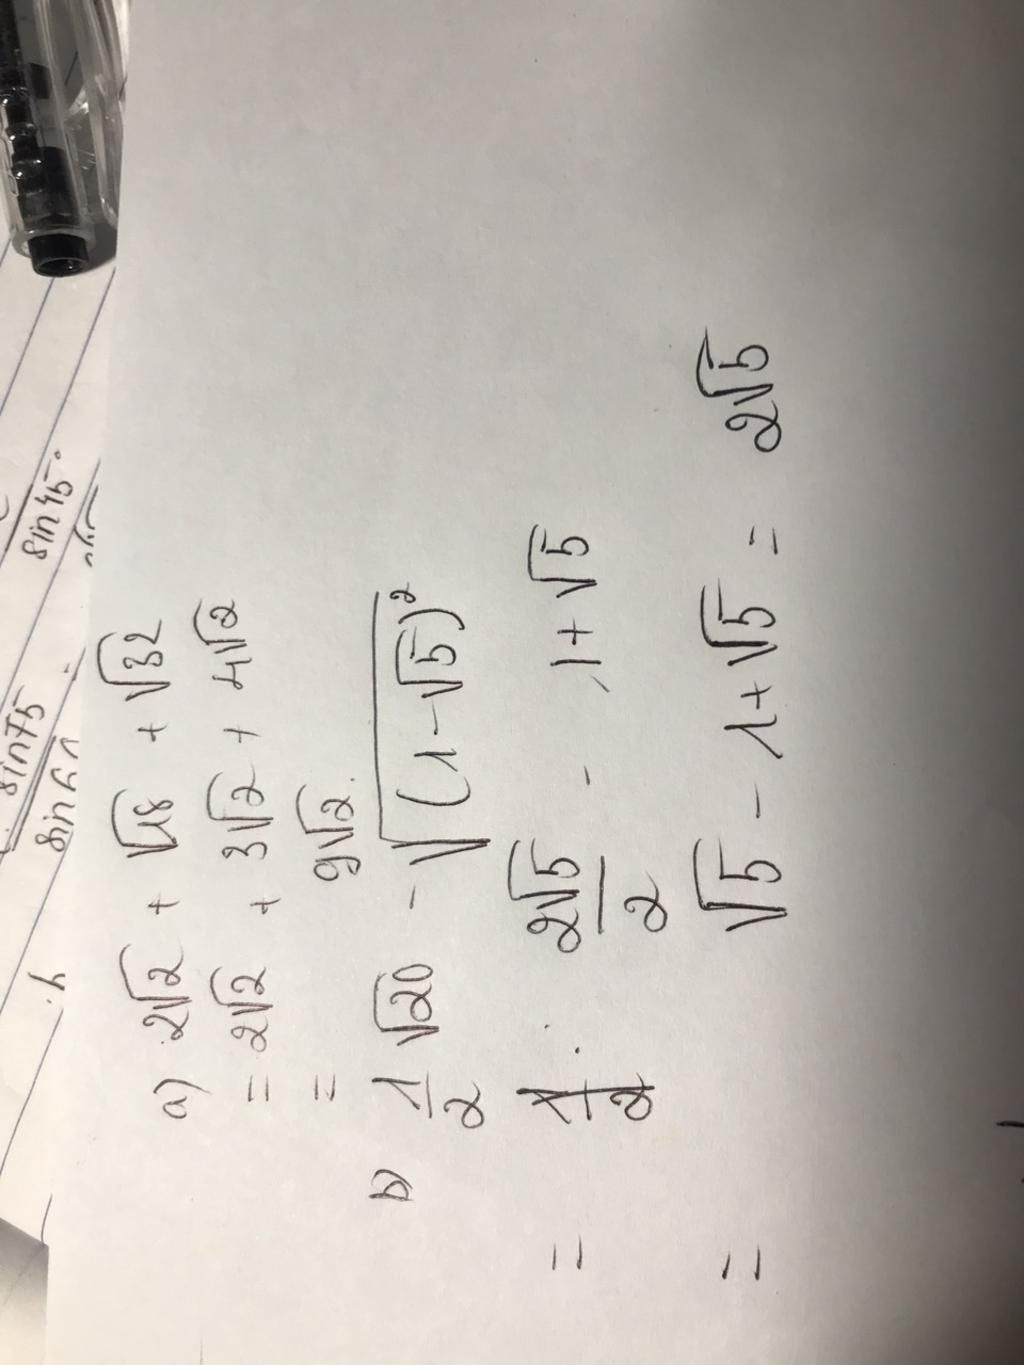 sin75
sin45°
a) 2√2 + √18 + √32
= 2√2 + 3√2 + 4√2
= 9√2.
b) 1/2 √20 - √(1-√5)²
= 2√5/2 - 1+√5
= √5 - 1+√5 = 2√5